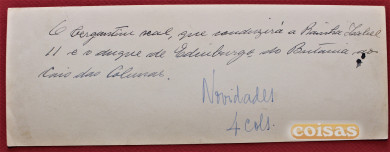 O Bergantim real, que conduzirá a Rainha Isabel
II e o duque de Edinburgo do Britania, ao
Cais das Colunas.
Novidades
4 cols.
coisas